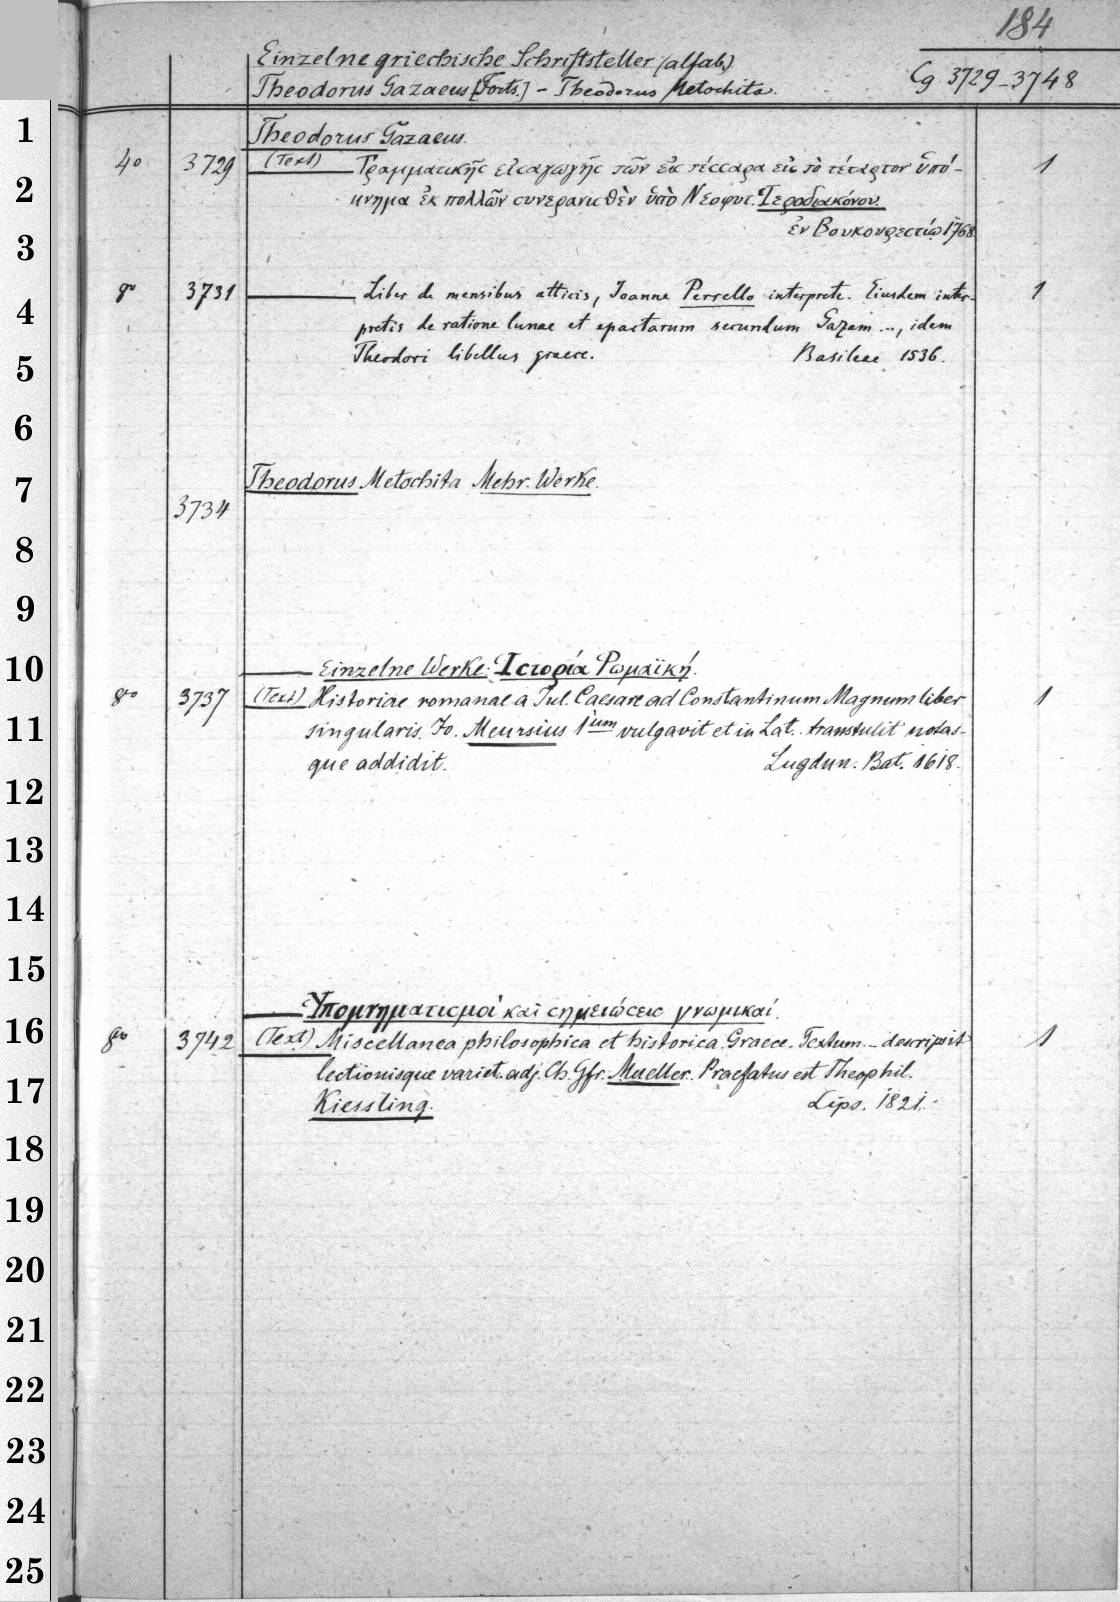 184
Einzelne griechische Schriftsteller (alfab.)
Theodorus Gazaeus [Forts.] - Theodorus Metochita.
Cg 3729-3748
Theodorus Gazaeus.
4o 3729 (Text) ——— Γραμματικῆς εἰσαγωγῆς τῶν εἰς τέσσαρα εἰς τὸ τέταρτον ὑπό- 1
μνημα ἐκ πολλῶν συνερανισθὲν ὑπὸ Νεοφυτ. Ἱεροδιακόνου.
ἐν Βουκουρεστίῳ 1768
8o 3731 ——— Liber de mensibus atticis, Joanne Perrello interprete. Eiusdem inter- 1
pretis de ratione lunae et epactarum secundum Gazam ..., idem
Theodori libellus graece. Basileae 1536.
Theodorus Metochita Mehr. Werke.
3734
——— Einzelne Werke: Ἱστορία Ρωμαϊκή.
8o 3737 (Text) Historiae romanae a Jul. Caesare ad Constantinum Magnum liber 1
singularis. Jo. Meursius 1um vulgavit et in Lat. transtulit notas-
que addidit. Lugdun. Bat. 1618.
——— Ὑπομνηματισμοὶ καὶ σημειώσεις γνωμικαί.
8o 3742 (Text) Miscellanea philosophica et historica. Graece. Textum - descripsit 1
lectionisque variet. adj. Ch. Gfr. Mueller. Praefatus est Theophil.
Kiessling. Lips. 1821.
1
2
3
4
5
6
7
8
9
10
11
12
13
14
15
16
17
18
19
20
21
22
23
24
25